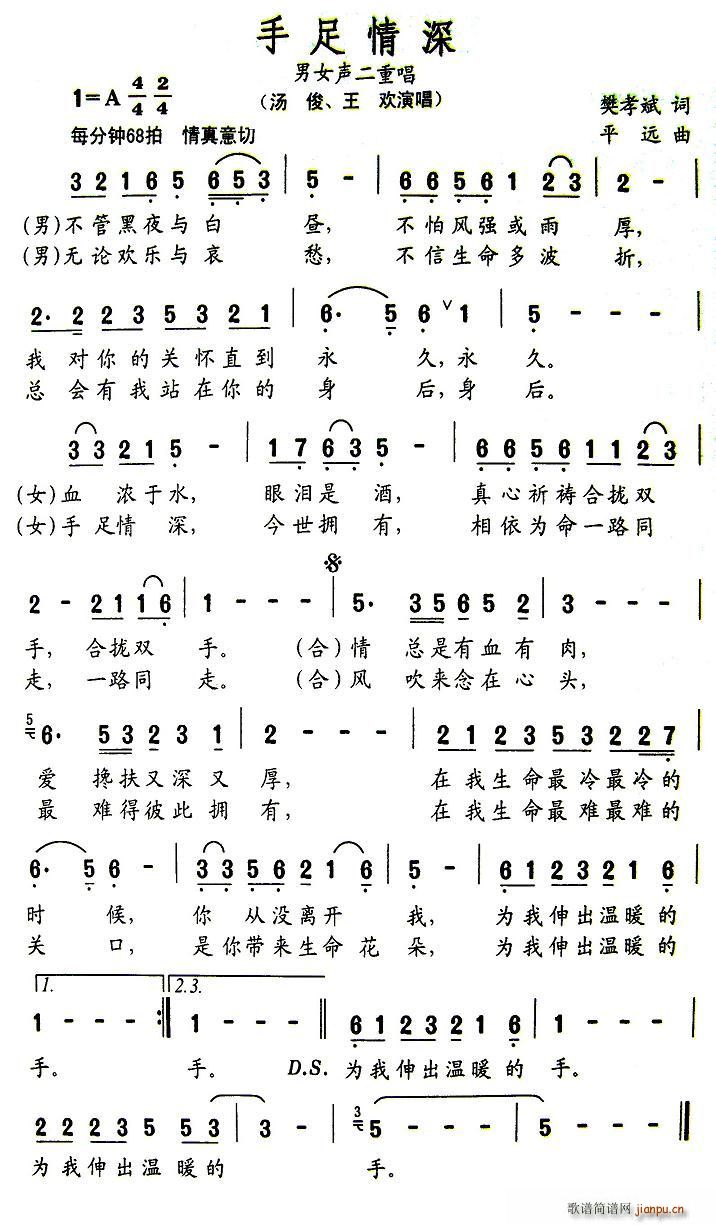 手足情深
男女声二重唱
1=A 4/4 2/4
（汤 俊、王 欢演唱）
樊孝斌 词
每分钟68拍 情真意切
平 远 曲
3 2 1 6 5 6 5 3 | 5 - | 6 6 5 6 1 2 3 | 2 - |
(男)不管黑夜与白 昼， 不怕风强或雨 厚，
(男)无论欢乐与哀 愁， 不信生命多波 折，
2· 2 2 3 5 3 2 1 | 6· 5 6 ∨ 1 | 5 - - - |
我 对你的关怀直到 永 久，永 久。
总 会有我站在你的 身 后，身 后。
3 3 2 1 5 - | 1 7 6 3 5 - | 6 6 5 6 1 1 2 3 |
(女)血 浓于水， 眼泪是 酒， 真心祈祷合拢双
(女)手足情 深， 今世拥 有， 相依为命一路同
2 - 2 1 1 6 | 1 - - - | 5· 3 5 6 5 2 | 3 - - - |
手，合拢双 手。 (合)情 总是有血有 肉，
走，一路同 走。 (合)风 吹来念在心 头，
5 6· 5 3 2 3 1 | 2 - - - | 2 1 2 3 5 3 2 2 7 |
爱 搀扶又深又 厚， 在我生命最冷最冷的
最 难得彼此拥 有， 在我生命最难最难的
6· 5 6 - | 3 3 5 6 2 1 6 | 5 - - - | 6 1 2 3 2 1 6 |
时 候， 你 从没离开 我， 为我伸出温暖的
关 口， 是你带来生命花 朵， 为我伸出温暖的
1. 2.3.
1 - - - :‖ 1 - - - ‖ 6 1 2 3 2 1 6 | 1 - - - |
手。 手。 D.S. 为我伸出温暖的 手。
2 2 2 3 5 5 3 | 3 - | 3 5 - - - | 5 - - - ‖
为我伸出温 暖的 手。
歌谱简谱网
jianpu.cn